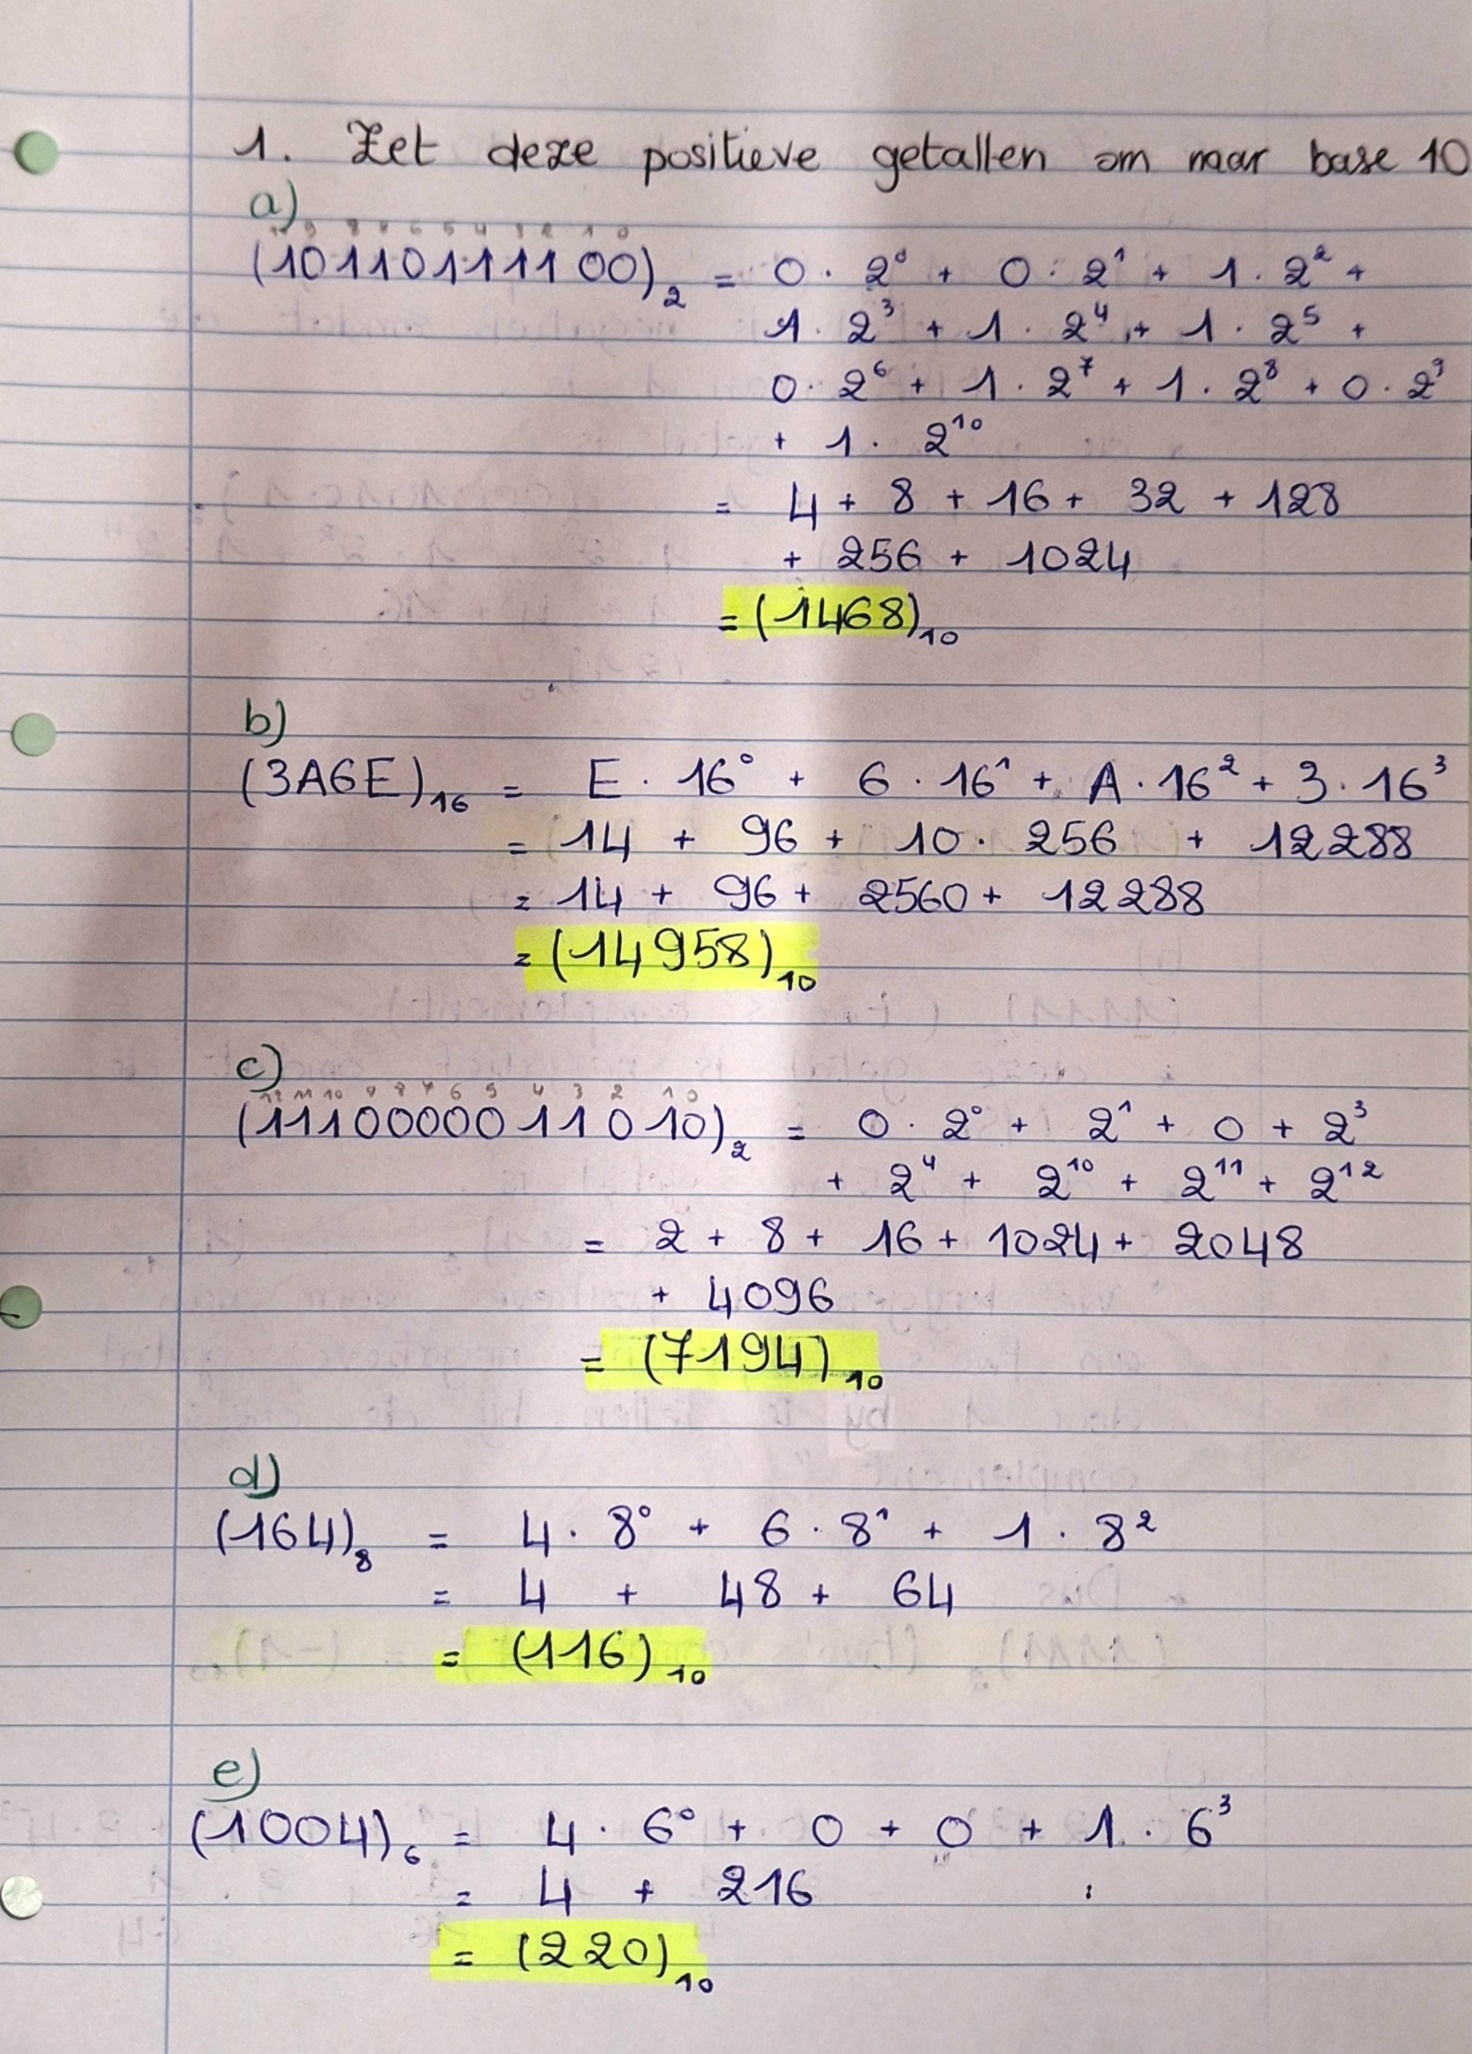 1. Zet deze positieve getallen om naar base 10
a)
10 9 8 7 6 5 4 3 2 1 0
(10110111100)₂ = 0 · 2⁰ + 0 · 2¹ + 1 · 2² +
1 · 2³ + 1 · 2⁴ + 1 · 2⁵ +
0 · 2⁶ + 1 · 2⁷ + 1 · 2⁸ + 0 · 2⁹
+ 1 · 2¹⁰
= 4 + 8 + 16 + 32 + 128
+ 256 + 1024
= (1468)₁₀
b)
(3A6E)₁₆ = E · 16⁰ + 6 · 16¹ + A · 16² + 3 · 16³
= 14 + 96 + 10 · 256 + 12288
= 14 + 96 + 2560 + 12288
= (14958)₁₀
c)
12 11 10 9 8 7 6 5 4 3 2 1 0
(1110000011010)₂ = 0 · 2⁰ + 2¹ + 0 + 2³
+ 2⁴ + 2¹⁰ + 2¹¹ + 2¹²
= 2 + 8 + 16 + 1024 + 2048
+ 4096
= (7194)₁₀
d)
(164)₈ = 4 · 8⁰ + 6 · 8¹ + 1 · 8²
= 4 + 48 + 64
= (116)₁₀
e)
(1004)₆ = 4 · 6⁰ + 0 + 0 + 1 · 6³
= 4 + 216
= (220)₁₀